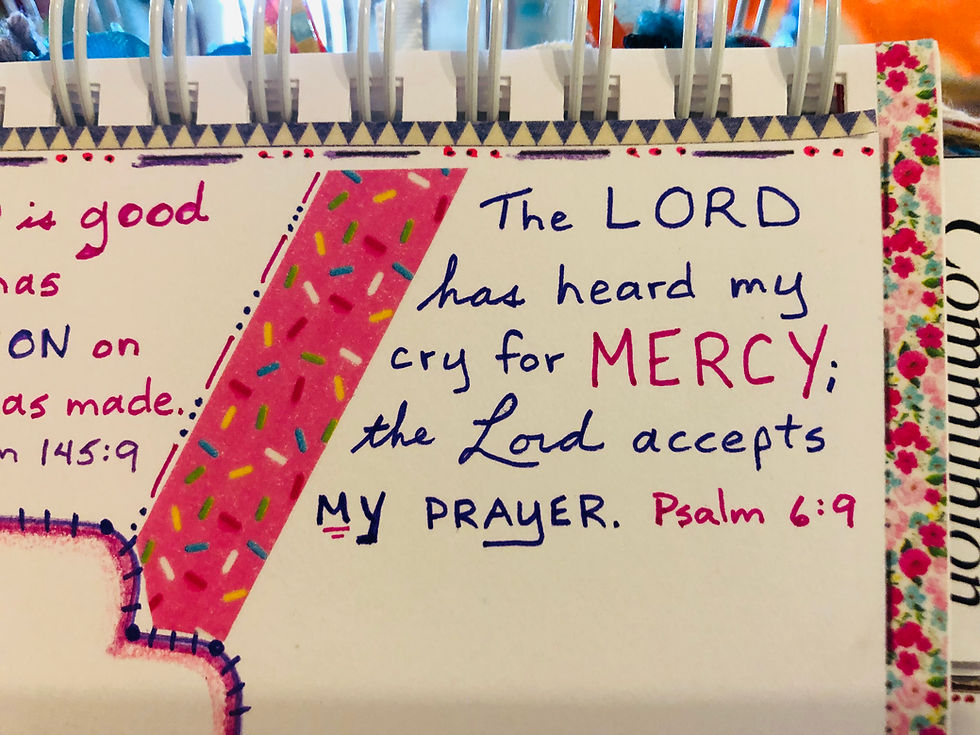 is good
has
ON on
as made.
145:9
The LORD
has heard my
cry for MERCY;
the Lord accepts
MY PRAYER. Psalm 6:9
Communion